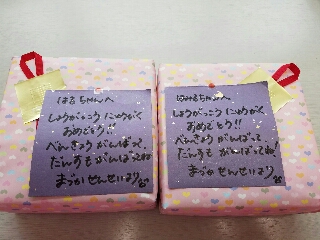 はるちゃんへ
しょうがっこう にゅうがく
おめでとう!!
べんきょう がんばって、
だんすも がんばってね
まづか せんせいより
ちゃんへ
しょうがっこう にゅうがく
おめでとう!!
べんきょう がんばって、
だんすも がんばってね!
まづか せんせいより